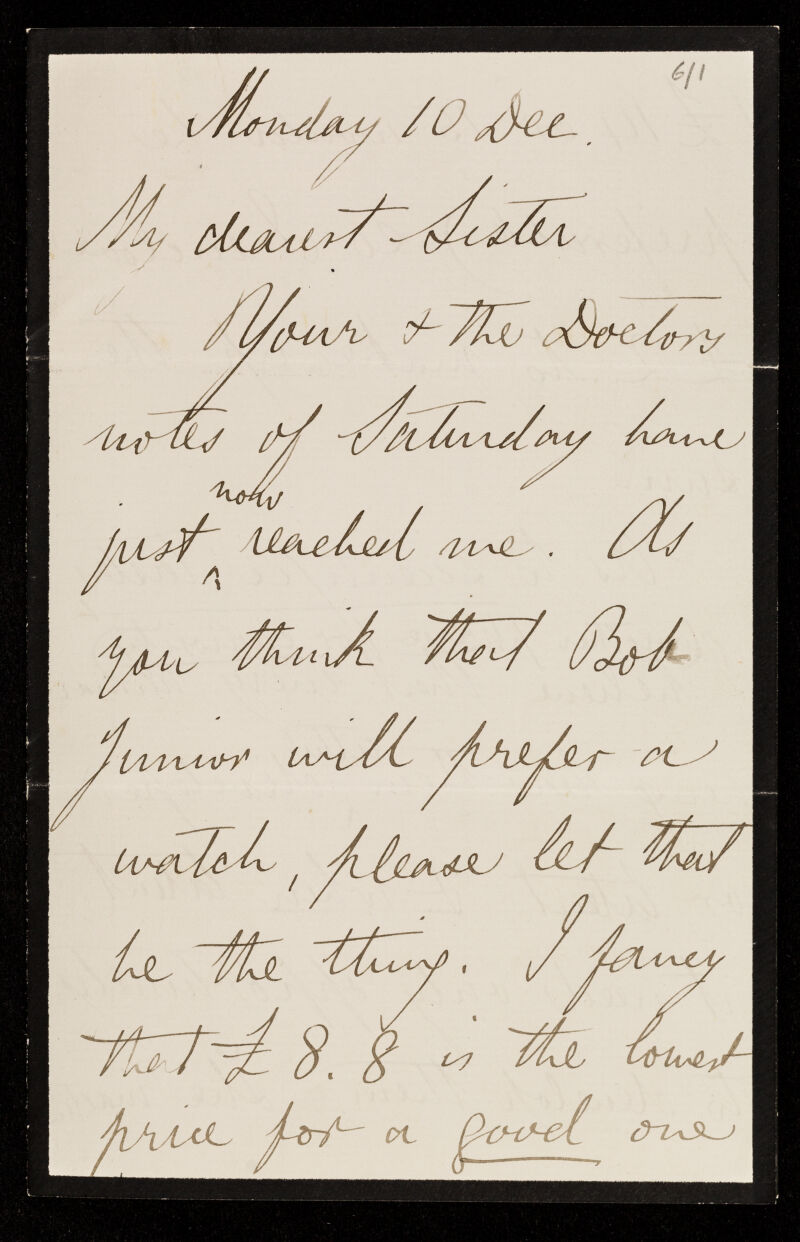 6/1
Monday 10 Dec.
My dearest Sister
Your & the Doctors
notes of Saturday have
just ^now reached me. As
you think that Bob
Junior will prefer a
watch, please let that
be the thing. I fancy
that £ 8. 8 is the lowest
price for a good one